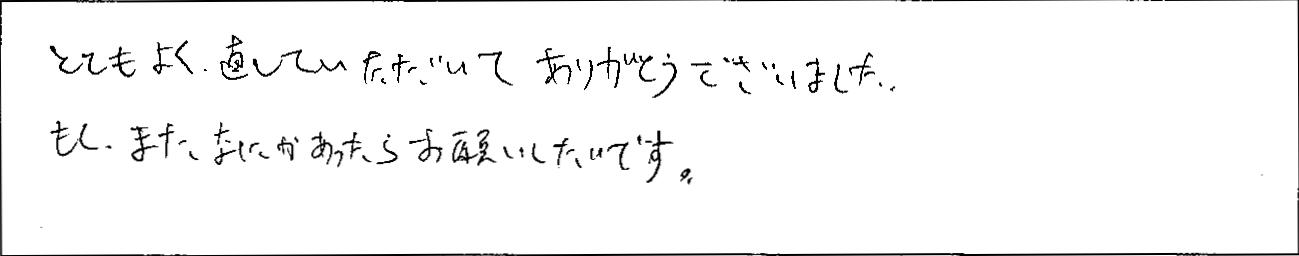 とてもよく、直していただいてありがとうございました。
もし、また、なにかあったらお願いしたいです。